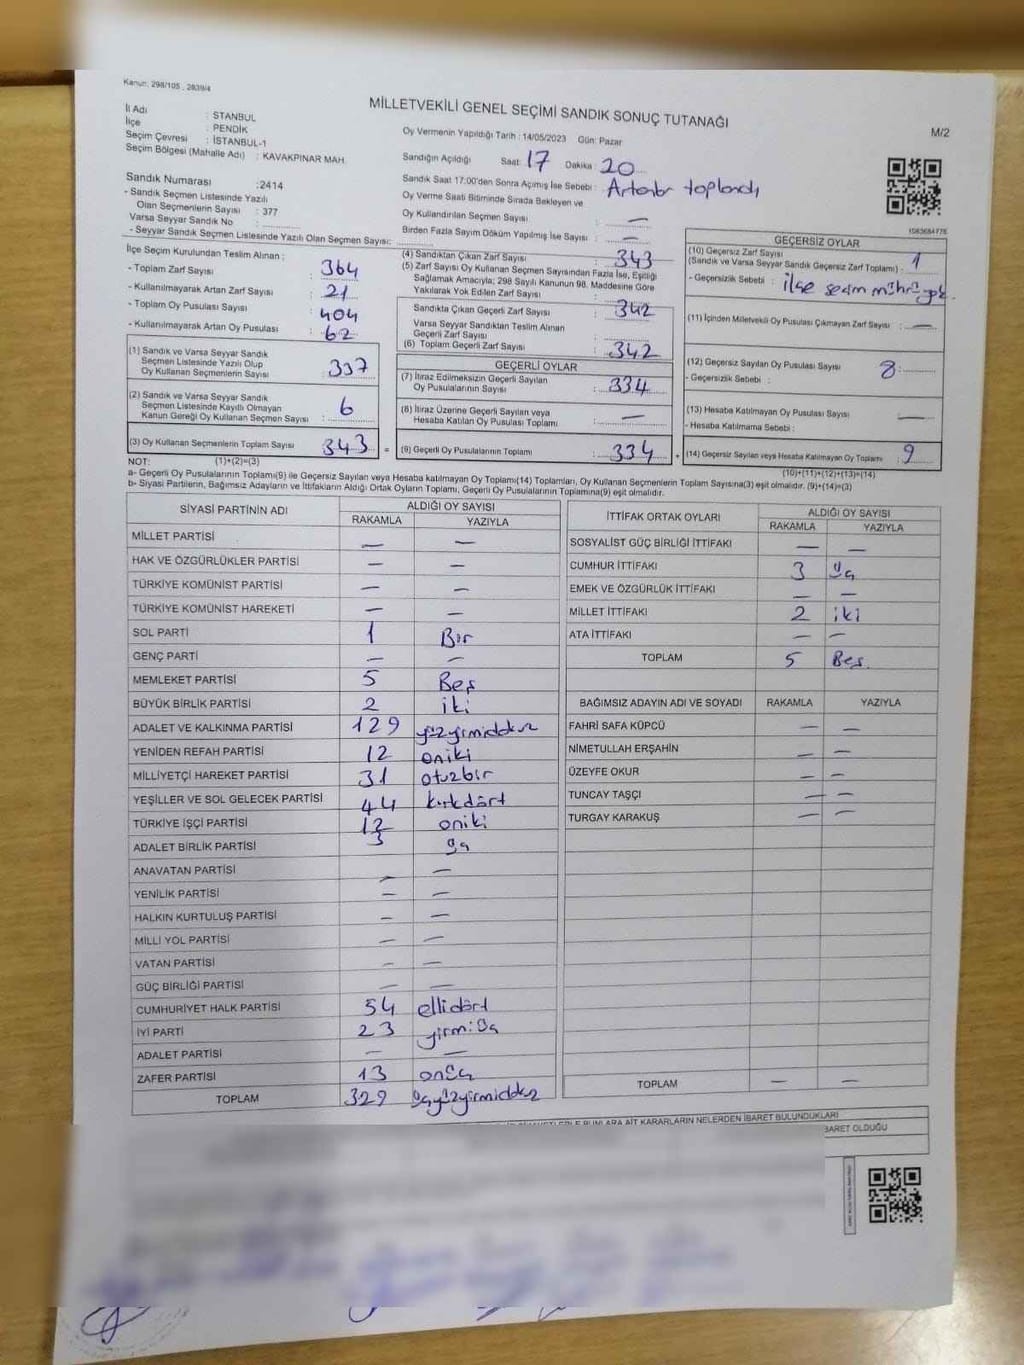 Kanun: 298/105 , 2839/4
MİLLETVEKİLİ GENEL SEÇİMİ SANDIK SONUÇ TUTANAĞI
M/2
İl Adı : STANBUL
İlçe : PENDİK
Seçim Çevresi : İSTANBUL-1
Seçim Bölgesi (Mahalle Adı) : KAVAKPINAR MAH.
Oy Vermenin Yapıldığı Tarih : 14/05/2023 Gün: Pazar
Sandığın Açıldığı Saat: 17 Dakika : 20
Sandık Saat 17:00'den Sonra Açımış İse Sebebi : Artanlar toplandı
Oy Verme Saati Bitiminde Sırada Bekleyen ve
Oy Kullandırılan Seçmen Sayısı : —
Birden Fazla Sayım Döküm Yapılmış İse Sayısı : —
Sandık Numarası :2414
- Sandık Seçmen Listesinde Yazılı
Olan Seçmenlerin Sayısı : 377
Varsa Seyyar Sandık No :
- Seyyar Sandık Seçmen Listesinde Yazılı Olan Seçmen Sayısı:
İlçe Seçim Kurulundan Teslim Alınan ;
- Toplam Zarf Sayısı : 364
- Kullanılmayarak Artan Zarf Sayısı : 21
- Toplam Oy Pusulası Sayısı : 404
- Kullanılmayarak Artan Oy Pusulası : 62
(1) Sandık ve Varsa Seyyar Sandık
Seçmen Listesinde Yazılı Olup
Oy Kullanan Seçmenlerin Sayısı : 337
(2) Sandık ve Varsa Seyyar Sandık
Seçmen Listesinde Kayıtlı Olmayan
Kanun Gereği Oy Kullanan Seçmen Sayısı : 6
(3) Oy Kullanan Seçmenlerin Toplam Sayısı 343 =
(4) Sandıktan Çıkan Zarf Sayısı : 343
(5) Zarf Sayısı Oy Kullanan Seçmen Sayısından Fazla İse, Eşitliği
Sağlamak Amacıyla; 298 Sayılı Kanunun 98. Maddesine Göre
Yakılarak Yok Edilen Zarf Sayısı :
Sandıkta Çıkan Geçerli Zarf Sayısı : 342
Varsa Seyyar Sandıktan Teslim Alınan
Geçerli Zarf Sayısı :
(6) Toplam Geçerli Zarf Sayısı : 342
GEÇERLİ OYLAR
(7) İtiraz Edilmeksizin Geçerli Sayılan
Oy Pusulalarının Sayısı : 334
(8) İtiraz Üzerine Geçerli Sayılan veya
Hesaba Katılan Oy Pusulası Toplamı : —
(9) Geçerli Oy Pusulalarının Toplamı : 334 +
1083684778
GEÇERSİZ OYLAR
(10) Geçersiz Zarf Sayısı
(Sandık ve Varsa Seyyar Sandık Geçersiz Zarf Toplamı) - 1
- Geçersizlik Sebebi : ilçe seçim mührü yok.
(11) İçinden Milletvekili Oy Pusulası Çıkmayan Zarf Sayısı : —
(12) Geçersiz Sayılan Oy Pusulası Sayısı 8 :
- Geçersizlik Sebebi :
(13) Hesaba Katılmayan Oy Pusulası Sayısı —
- Hesaba Katılmama Sebebi :
(14) Geçersiz Sayılan veya Hesaba Katılmayan Oy Toplamı : 9
NOT: (1)+(2)=(3)
(10)+(11)+(12)+(13)=(14)
a- Geçerli Oy Pusulalarının Toplamı(9) ile Geçersiz Sayılan veya Hesaba katılmayan Oy Toplamı(14) Toplamları, Oy Kullanan Seçmenlerin Toplam Sayısına(3) eşit olmalıdır. (9)+(14)=(3)
b- Siyasi Partilerin, Bağımsız Adayların ve İttifakların Aldığı Ortak Oyların Toplamı, Geçerli Oy Pusulalarının Toplamına(9) eşit olmalıdır.
SİYASİ PARTİNİN ADI ALDIĞI OY SAYISI
RAKAMLA YAZIYLA
MİLLET PARTİSİ — —
HAK VE ÖZGÜRLÜKLER PARTİSİ — —
TÜRKİYE KOMÜNİST PARTİSİ — —
TÜRKİYE KOMÜNİST HAREKETİ — —
SOL PARTİ 1 Bir
GENÇ PARTİ — —
MEMLEKET PARTİSİ 5 Beş
BÜYÜK BİRLİK PARTİSİ 2 iki
ADALET VE KALKINMA PARTİSİ 129 yüzyirmidokuz
YENİDEN REFAH PARTİSİ 12 oniki
MİLLİYETÇİ HAREKET PARTİSİ 31 otuzbir
YEŞİLLER VE SOL GELECEK PARTİSİ 44 kırkdört
TÜRKİYE İŞÇİ PARTİSİ 12 oniki
ADALET BİRLİK PARTİSİ 3 üç
ANAVATAN PARTİSİ — —
YENİLİK PARTİSİ — —
HALKIN KURTULUŞ PARTİSİ — —
MİLLİ YOL PARTİSİ — —
VATAN PARTİSİ — —
GÜÇ BİRLİĞİ PARTİSİ — —
CUMHURİYET HALK PARTİSİ 54 ellidört
İYİ PARTİ 23 yirmiüç
ADALET PARTİSİ — —
ZAFER PARTİSİ 13 onüç
TOPLAM 329 üçyüzyirmidokuz
İTTİFAK ORTAK OYLARI ALDIĞI OY SAYISI
RAKAMLA YAZIYLA
SOSYALİST GÜÇ BİRLİĞİ İTTİFAKI — —
CUMHUR İTTİFAKI 3 üç
EMEK VE ÖZGÜRLÜK İTTİFAKI — —
MİLLET İTTİFAKI 2 iki
ATA İTTİFAKI — —
TOPLAM 5 Beş.
BAĞIMSIZ ADAYIN ADI VE SOYADI RAKAMLA YAZIYLA
FAHRİ SAFA KÜPCÜ — —
NİMETULLAH ERŞAHİN — —
ÜZEYFE OKUR — —
TUNCAY TAŞÇI — —
TURGAY KARAKUŞ — —
TOPLAM — —
BUNLARA AİT KARARLARIN NELERDEN İBARET BULUNDUKLARI
BARET OLDUĞU